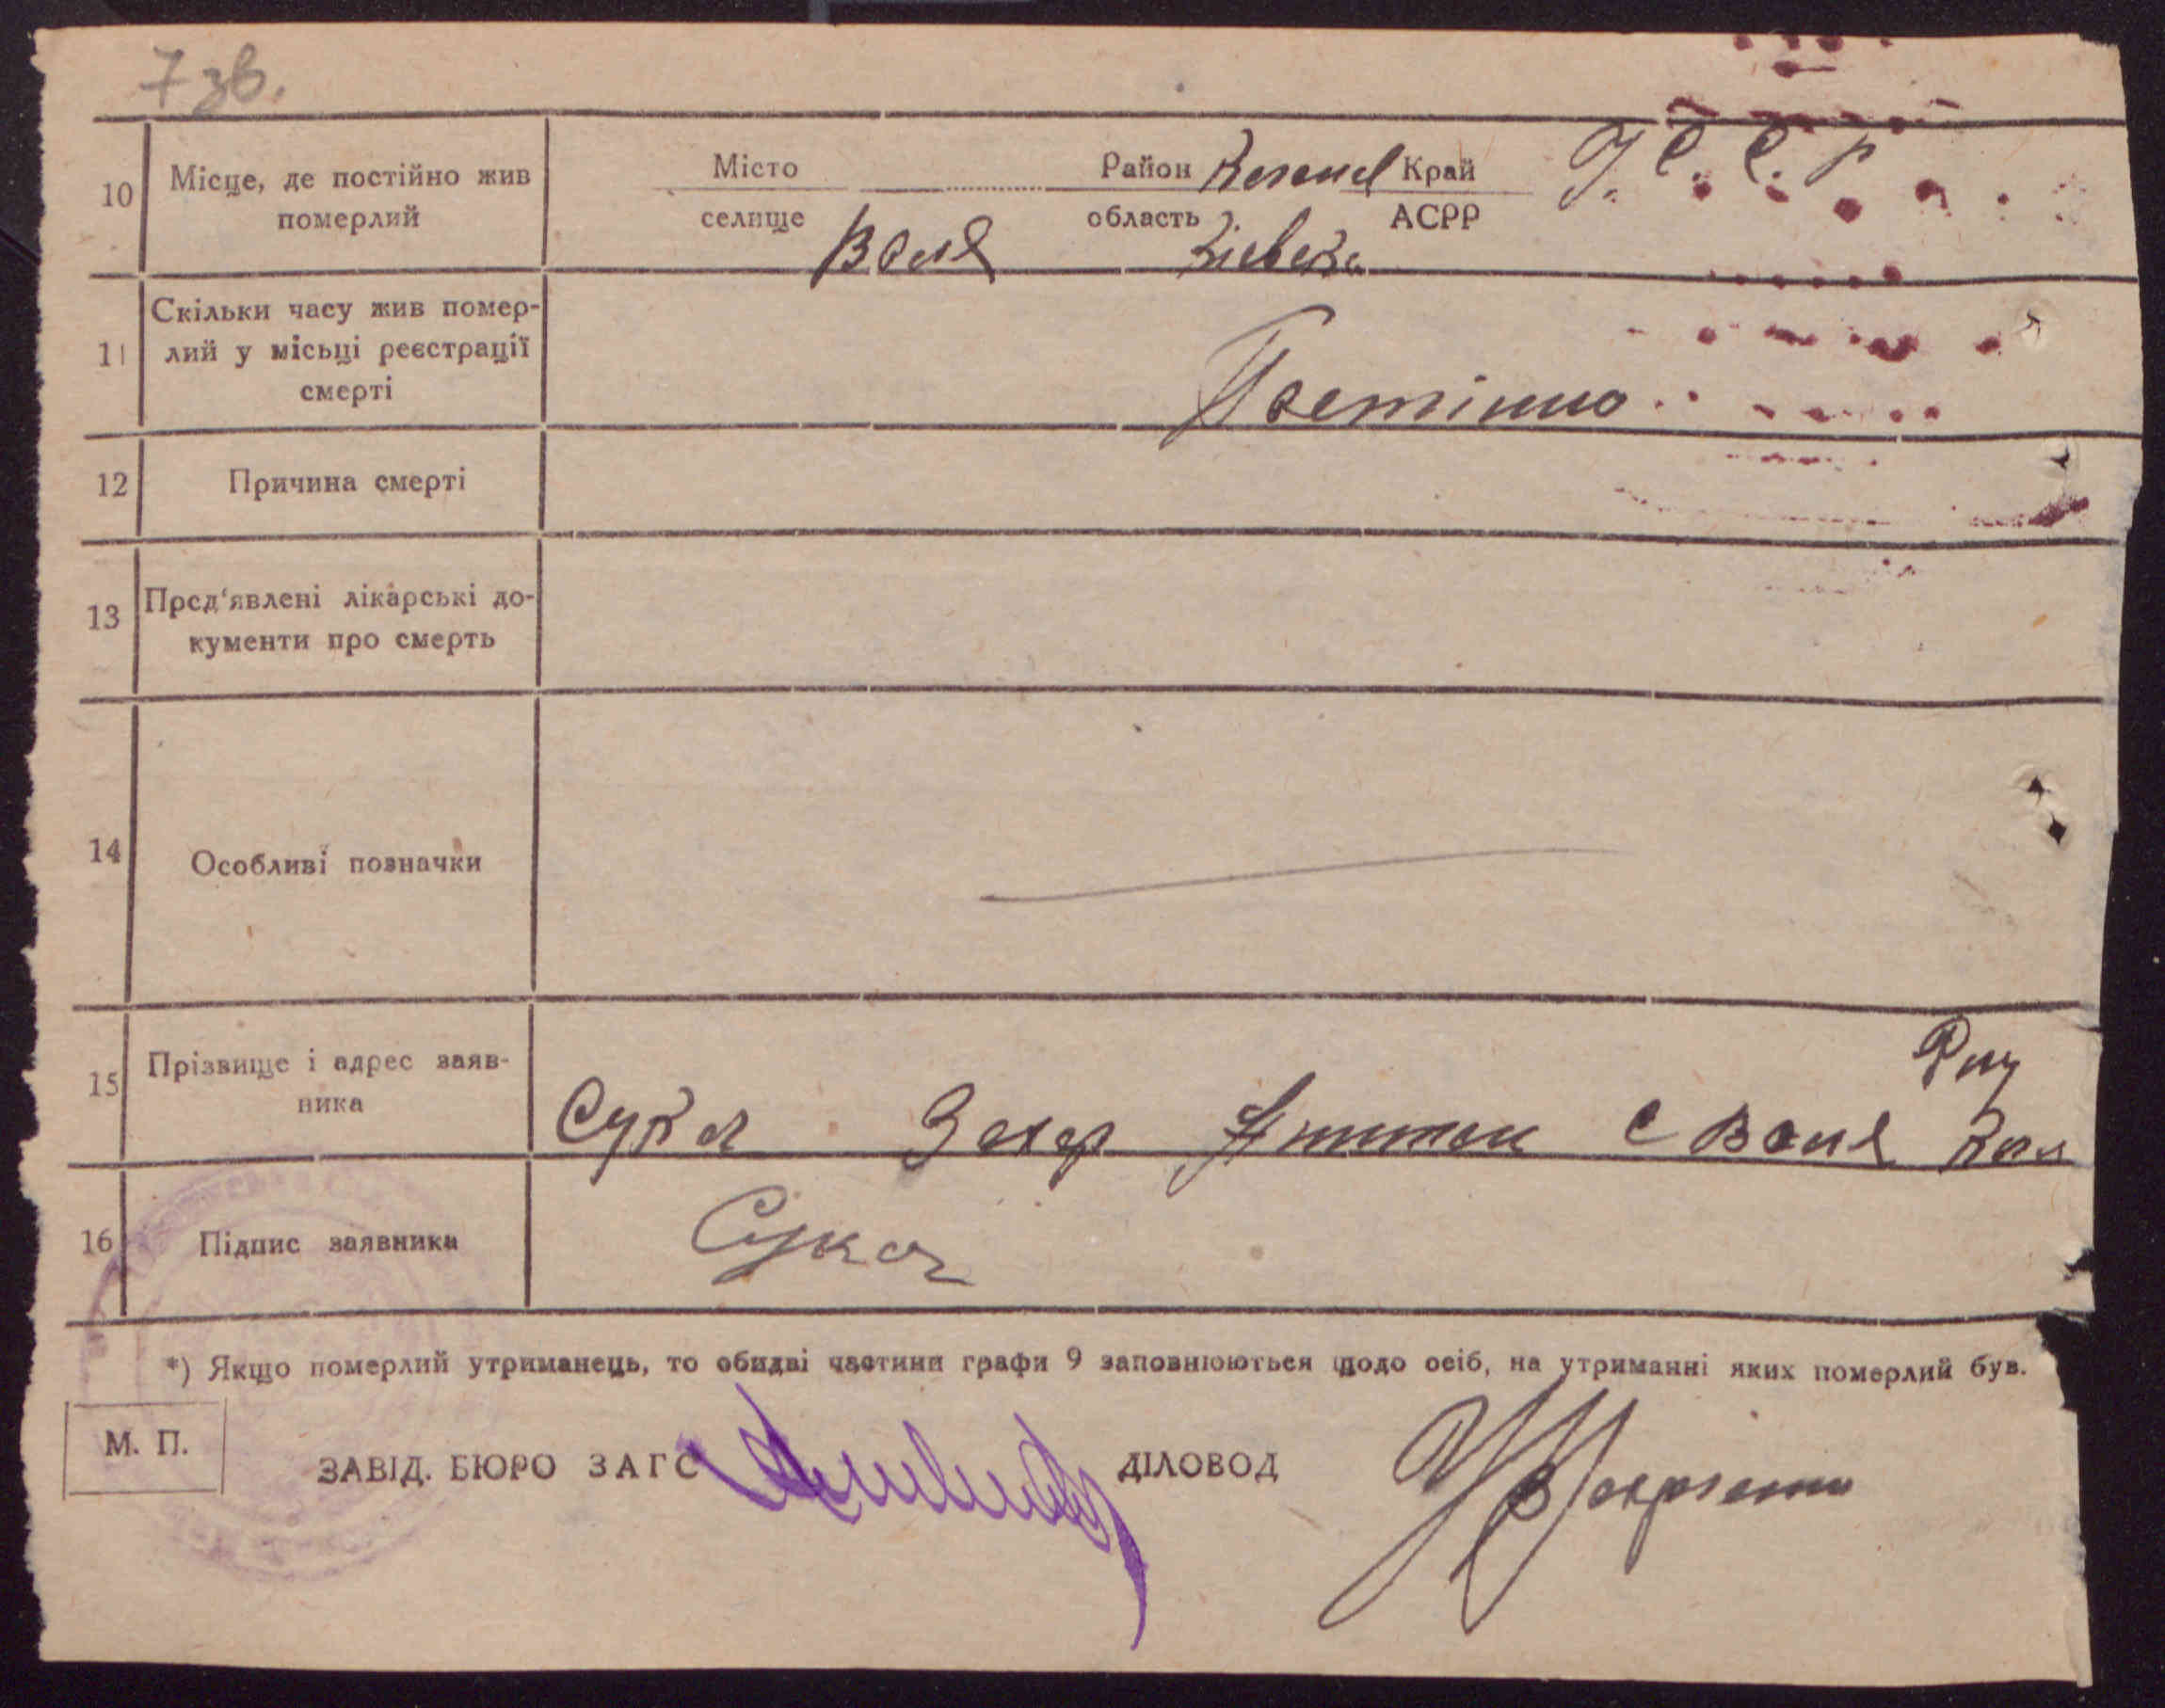 7 зв.
10
Місце, де постійно жив
померлий
Місто
селище
Воля
Район
область
Край
АСРР
У. С. С. Р
11
Скільки часу жив помер-
лий у місьці реєстрації
смерті
Постіино
12
Причина смерті
13
Пред'явлені лікарські до-
кументи про смерть
14
Особливі позначки
15
Прізвище і адрес заяв-
ника
Сукач Захар с Воля
16
Підпис заявника
Сукач
*) Якщо померлий утриманець, то обидві частини графи 9 заповнюються щодо осіб, на утриманні яких померлий був.
М. П.
ЗАВІД. БЮРО ЗАГС
ДІЛОВОД